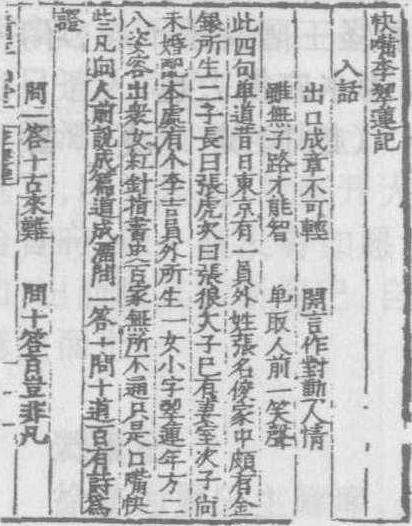 快嘴李翠蓮記
入話
出口成章不可輕 開言作對動人情
雖無子路才能智 单取人前一笑聲
此四句单道昔日東京有一員外姓張名俊家中頗有金
銀所生二子長曰張虎次曰張狼大子已有妻室次子尚
未婚配本處有个李吉員外所生一女小字翠蓮年方二
八姿容出衆女紅針指書史百家無所不通只是口嘴快
些凡向人前說成篇道成溜問一答十問十道百有詩爲
證
問一答十古來難 問十答百豈非凡